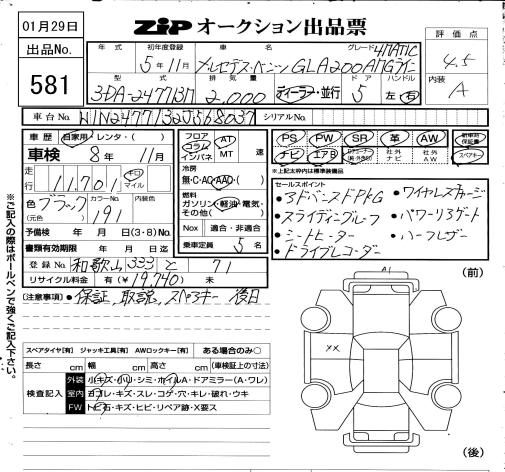 01月29日
ZIP オークション出品票
出品No.
581
評価点
4.5
内装
A
年式 初年度登録 車名 グレード
5年11月 メルセデス・ベンツ GLA200d 4MATIC AMGライン
型式 排気量 ドア ハンドル
3DA-247713M 2,000 ディーラー・並行 5 左・右
車台No. W1N2477132J568037 シリアルNo.
車歴 自家用・レンタ・( )
車検 8年 11月
走行 11,701 キロ マイル
色 ブラック カラーNo. 191 内装色
(元色)
予備検 年 月 日(3・8)No.
書類有効期限 年 月 日迄
登録No. 和歌山 333 と 71
リサイクル料金 有(¥19,740) 未
フロア コラム インパネ AT MT 速
冷房
無・C・AC・AAC・( )
燃料
ガソリン・軽油・電気・その他( )
Nox 適合・非適合
乗車定員 5名
PS PW SR 革 AW 新車時保証書
ナビ エアB 社外ナビ 社外AW スペアキー
*上記太枠内は標準装備品
セールスポイント
・アドバンスドPKG ・ワイヤレスチャージ
・スライディングルーフ ・パワーリアゲート
・シートヒーター ・ハーフレザー
・ドライブレコーダー
(注意事項) ・保証、取説、スペアキー 後日
※ご記入の際はボールペンで強くご記入下さい。
スペアタイヤ[有] ジャッキ工具[有] AWロックキー[有] ある場合のみ○
長さ cm 幅 cm 高さ cm (車検証上の寸法)
検査記入
外装 小キズ・小リ・シミ・ホイルA・ドアミラー(A・ワレ)
室内 ヨゴレ・キズ・スレ・コゲ・穴・キレ・破れ・ウキ
FW トビ石・キズ・ヒビ・リペア跡・X要ス
(前)
A1
XX
(後)